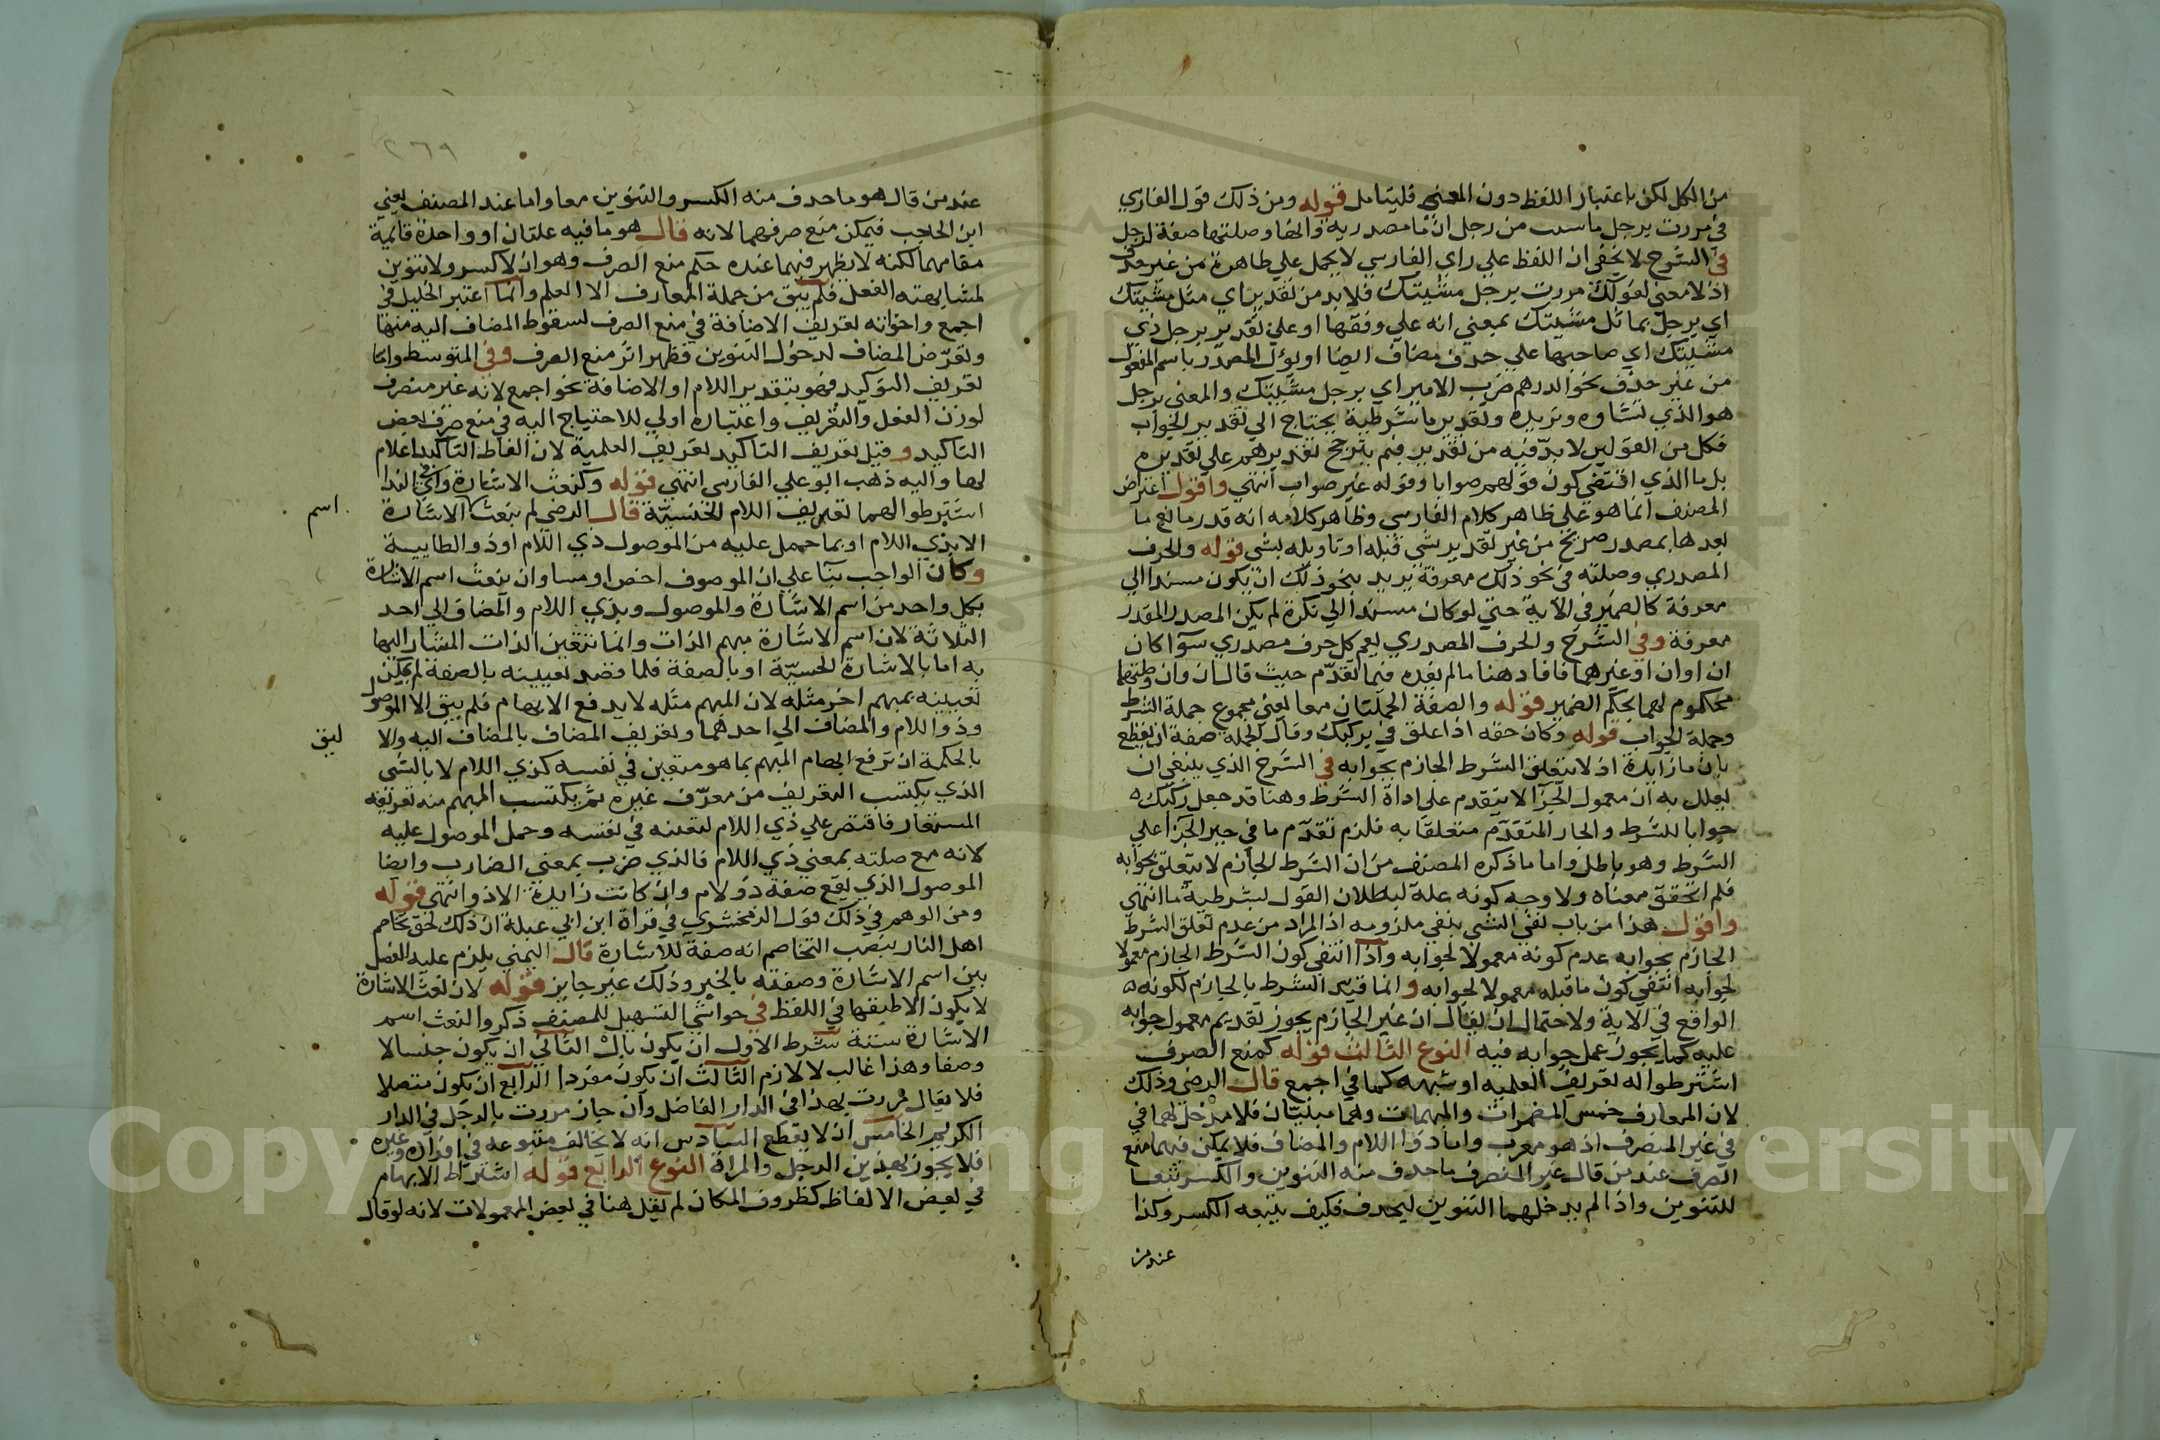 من الكل لكن باعتبار اللفظ دون المعنى فليتامل قوله ومن ذلك قول الفارسي
في مررت برجل ماشئت من رجل ان ما مصدرية وانها وصلتها صفة لرجل
في الشرح لا يخفى ان اللفظ على راي الفارسي لا يحمل على ظاهره من غير حذف
اذ لا معنى لقولك مررت برجل مشيتك فلا بد من تقدير اي مثل مشيتك
اي برجل يماثل مشيتك بمعنى انه على وفقها او على تقدير برجل ذي
مشيتك اي صاحبها على حذف مضاف ايضا او يؤول المصدر باسم المفعول
من غير حذف نحو الدرهم ضرب الامير اي برجل مشيتك والمعنى برجل
هو الذي تشاوه وتريده وتقدير ما شرطية يحتاج الى تقدير الجواب
فكل من القولين لا بد فيه من تقدير فبم يترجح تقديرهم على تقديره
بل ما الذي اقتضى كون قولهم صوابا وقوله غير صواب انتهى واقول اعتراض
المصنف انما هو على ظاهر كلام الفارسي وظاهر كلامه انه قدر ما مع ما
بعدها بمصدر صريح من غير تقدير شي قبله او تاويله بشي قوله والحرف
المصدري وصلته في نحو ذلك معرفة يريد بنحو ذلك ان يكون مسندا الى
معرفة كالضمير في الاية حتى لو كان مسندا الى نكرة لم يكن المصدر المقدر
معرفة وفي الشرح والحرف المصدري يعم كل حرف مصدري سوا كان
ان او ان او غيرهما فافاد هنا مالم يفده فيما تقدم حيث قال ان وان وصلتهما
محكوم لهما بحكم الضمير قوله والصفة الجملتان معا يعني مجموع جملة الشرط
وجملة الجواب قوله وكان حقه اذا علق في بركبك وقال الجملة صفة ان يقطع
بان ما زايدة اذ لا يتعلق الشرط الجازم بجوابه في الشرح الذي ينبغي ان
يعلل به ان معمول الجزا لا يتقدم على اداة الشرط وهنا قد جعل ركبك
جوابا للشرط والجار المتقدم متعلقا به فلزم تقدم ما في حيز الجزا على
الشرط وهو باطل واما ما ذكره المصنف من ان الشرط الجازم لا يتعلق بجوابه
فلم اتحقق معناه ولا وجه كونه علة لبطلان القول بشرطية ما انتهى
واقول هذا من باب نفي الشي بنفي ملزومه اذ المراد من عدم تعلق الشرط
الجازم بجوابه عدم كونه معمولا لجوابه واذا انتفى كون الشرط الجازم معمولا
لجوابه انتفى كون ما قبله معمولا لجوابه وانما قيد الشرط بالجازم لكونه
الواقع في الاية ولاحتمال ان يقال ان غير الجازم يجوز تقديم معمول جوابه
عليه كما يجوز عمل جوابه فيه النوع الثالث قوله كمنع الصرف
اشترطوا له تعريف العلمية او شبهه كما في اجمع قال الرضي وذلك
لان المعارف خمس المضمرات والمبهمات وهما مبنيتان فلا مدخل لهما في
في غير المنصرف اذ هو معرب واما ذو اللام والمضاف فلا يمكن فيهما منع
الصرف عند من قال غير المنصرف ما حذف منه التنوين والكسر تبعا
للتنوين واذا لم يدخلهما التنوين ليحذف فكيف يتبعه الكسر وكذا
عند من
٢٦٩
عند من قال هو ما حذف منه الكسر والتنوين معا واما عند المصنف يعني
ابن الحاجب فيمكن منع صرفهما لانه قال هو ما فيه علتان او واحدة قائمة
مقامهما لكنه لا يظهر فيهما عنده حكم منع الصرف وهو ان لا كسر ولا تنوين
لمشابهته الفعل فلم يبق من جملة المعارف الا العلم وانما اعتبر الخليل في
اجمع واخواته تعريف الاضافة في منع الصرف لسقوط المضاف اليه منها
وتعرض المضاف لدخول التنوين فظهر اثر منع الصرف وفي المتوسط واما
تعريف التوكيد فهو بتقدير اللام او الاضافة نحو اجمع لانه غير منصرف
لوزن الفعل والتعريف واعتباره اولى للاحتياج اليه في منع صرف بعض
التاكيد وقيل تعريف التاكيد تعريف العلمية لان الفاظ التاكيد اعلام
لها واليه ذهب ابو علي الفارسي انتهى قوله وكنعت الاشارة واي في الندا
اشترطوا لهما تعريف اللام الجنسية قال الرضي لم ينعت الاشارة
اسم
الا بذي اللام او بما حمل عليه من الموصول ذي اللام او ذو الطايية
وكان الواجب بنا على ان الموصوف اخص او مساو ان ينعت اسم الاشارة
بكل واحد من اسم الاشارة والموصول وبذي اللام والمضاف الى احد
الثلاثة لان اسم الاشارة مبهم الذات وانما تتعين الذات المشار اليها
به اما بالاشارة الحسية او بالصفة فلما قصد تعيينه بالصفة لم يمكن
تعيينه بمبهم اخر مثله لان المبهم مثله لا يدفع الابهام فلم يبق الا الموصول
وذو اللام والمضاف الى احدهما وتعريف المضاف بالمضاف اليه والا
ليق
بالحكمة ان ترفع ابهام المبهم بما هو متعين في نفسه كذي اللام لا بالشي
الذي يكتسب التعريف من معرف غيره ثم يكتسب المبهم منه تعريفه
المستعار فاقتصر على ذي اللام لتعينه في نفسه وحمل الموصول عليه
لانه مع صلته بمعنى ذي اللام فالذي ضرب بمعنى الضارب وايضا
الموصول الذي يقع صفة ذو لام وان كانت زايدة الا ذو انتهى قوله
ومن الوهم في ذلك قول الزمخشري في قراة ابن ابي عبلة ان ذلك لحق تخاصم
اهل النار بنصب التخاصم انه صفة للاشارة قال اليمني يلزم عليه الفصل
بين اسم الاشارة وصفته بالخبر وذلك غير جايز قوله لان نعت الاشارة
لا يكون الا طبقها في اللفظ في حواشي التسهيل للمصنف ذكر والنعت اسم
الاشارة ستة شرط الاول ان يكون بال الثاني ان يكون جنسا لا
وصفا وهذا غالب لا لازم الثالث ان يكون مفردا الرابع ان يكون متصلا
فلا يقال مررت بهذا في الدار الفاضل وان جاز مررت بالرجل في الدار
الكريم الخامس ان لا يقطع السادس انه لا يخالف متبوعه في افراده وغيره
فلا يجوز بهذين الرجل والمراة النوع الرابع قوله اشتراط الابهام
في بعض الالفاظ كظروف المكان لم يقل هنا في بعض المعمولات لانه لو قال